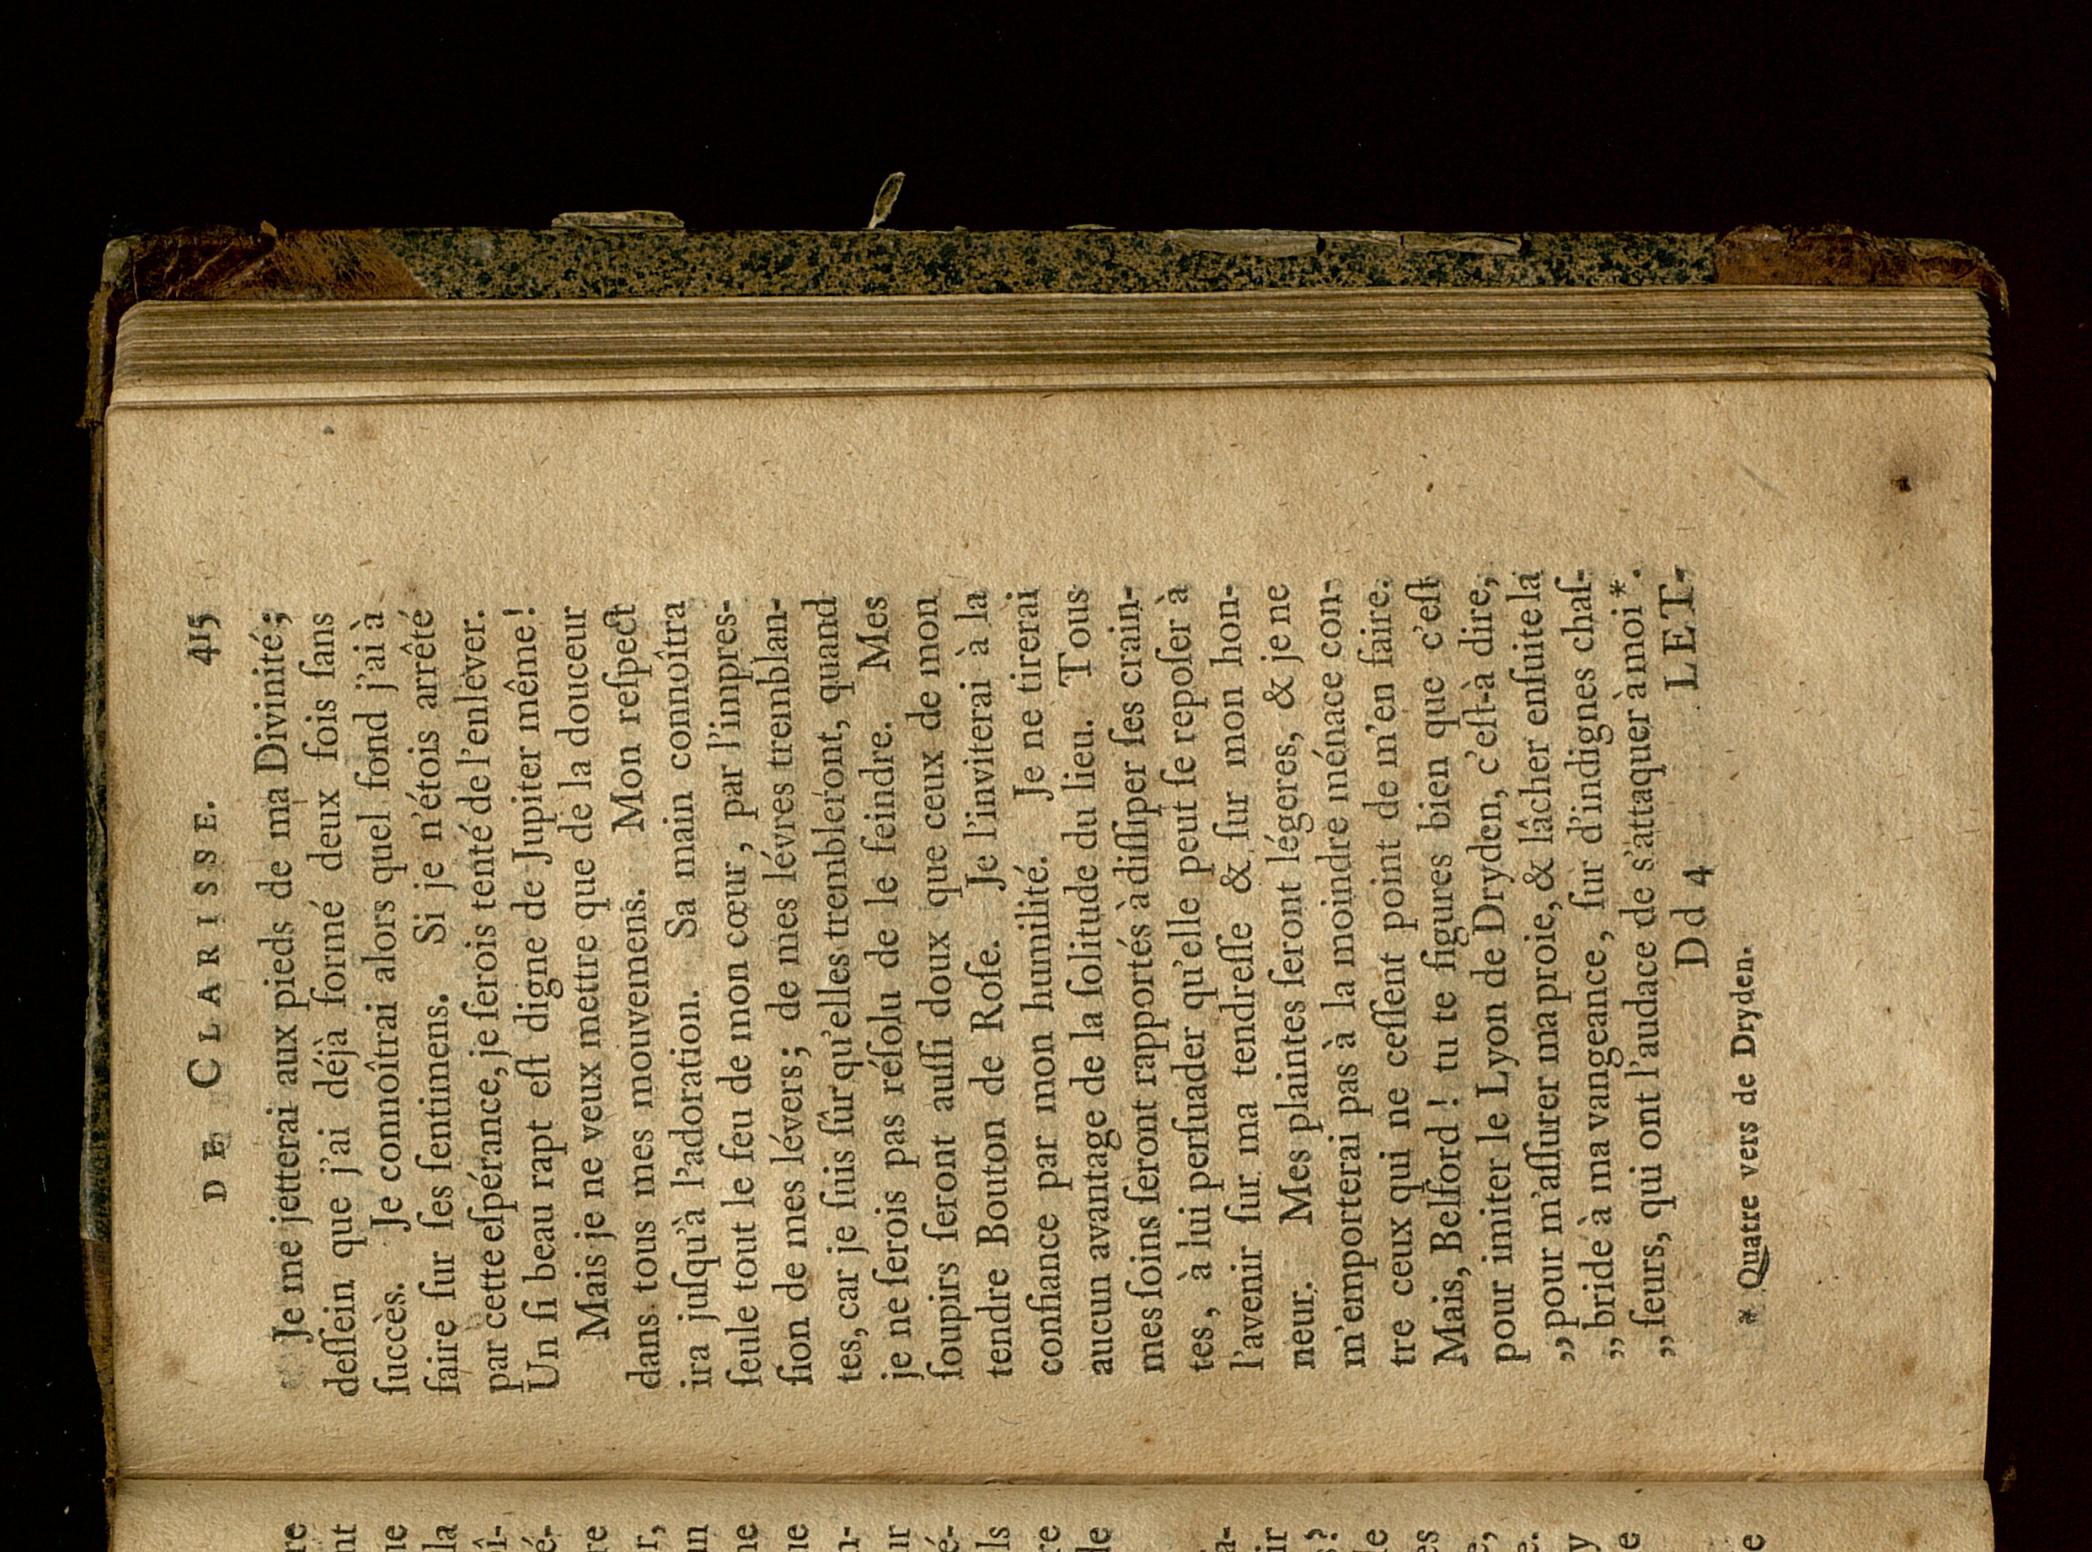 DE CLARISSE. 415
Je me jetterai aux pieds de ma Divinité;
deſſein que j'ai déjà formé deux fois ſans
ſuccès. Je connoîtrai alors quel fond j'ai à
faire ſur ſes ſentimens. Si je n'étois arrêté
par cette eſpérance, je ſerois tenté de l'enlever.
Un ſi beau rapt eſt digne de Jupiter même!
Mais je ne veux mettre que de la douceur
dans tous mes mouvemens. Mon reſpect
ira juſqu'à l'adoration. Sa main connoîtra
ſeule tout le feu de mon cœur, par l'impres-
ſion de mes lévers; de mes lévres tremblan-
tes, car je ſuis ſûr qu'elles trembleront, quand
je ne ſerois pas réſolu de le feindre. Mes
ſoupirs ſeront auſſi doux que ceux de mon
tendre Bouton de Roſe. Je l'inviterai à la
confiance par mon humilité. Je ne tirerai
aucun avantage de la ſolitude du lieu. Tous
mes ſoins ſeront rapportés à diſſiper ſes crain-
tes, à lui perſuader qu'elle peut ſe repoſer à
l'avenir ſur ma tendreſſe & ſur mon hon-
neur. Mes plaintes ſeront légeres, & je ne
m'emporterai pas à la moindre ménace con-
tre ceux qui ne ceſſent point de m'en faire.
Mais, Belford! tu te figures bien que c'eſt
pour imiter le Lyon de Dryden, c'eſt-à dire,
„pour m'aſſurer ma proie, & lâcher enſuite la
„bride à ma vangeance, ſur d'indignes chaſ-
„ſeurs, qui ont l'audace de s'attaquer à moi*.
Dd 4 LET-
* Quatre vers de Dryden.
re
nt
ue
la
oî-
é-
re
r,
un
ne
ue
n-
ur
é-
ls
re
de
a-
ir
s?
de
es
e,
e.
y
e
e